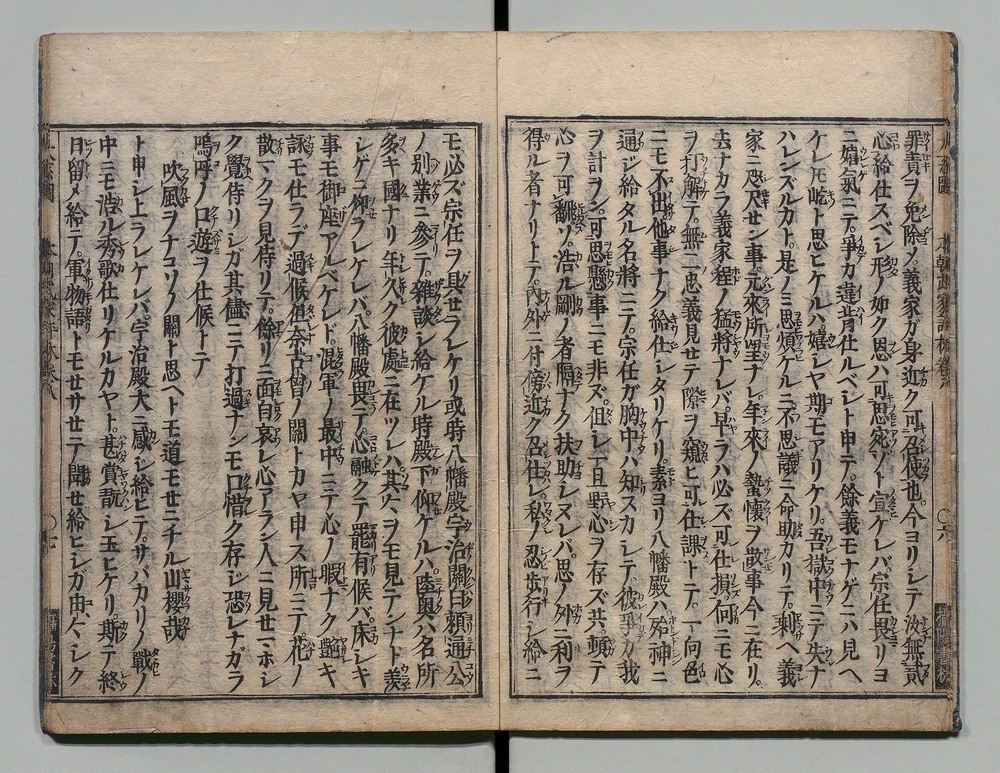 罪責ヲ免除ノ義家ガ身近ク可召使也。今ヨリシテ汝無貳
心給仕スベシ形ノ如ク恩ハ可思宛ゾト宣ケレバ。宗任畏リヨ
ニ嬉氣ニテ。爭カ違背仕ルベシト申テ。餘義モナゲニハ見ヘ
ケレ𪜈屹ト思ヒケルハ嬉シヤ期モアリケリ。吾獄中ニテ失ナ
ハレンズルカト。是ノミ思煩ケルニ不思議ニ命助カリテ。剰ヘ義
家ニ咫尺セン事。元來所望ナレ。年來ノ蟄懷ヲ散事今ニ在リ。
去ナカラ義家程ノ猛將ナレバ。早ラハ必ズ可仕損。何ニモ心
ヲ打解テ。無二忠義見セテ隙ヲ窺ヒ可仕課トテ。一向色
ニモ不出他事ナク給仕シタリケリ。素ヨリ八幡殿ハ殆神ニ
通ジ給タル名將ニテ。宗任ガ胸中ハ知スカシテ。彼爭カ我
ヲ計ラン。可思懸事ニモ非ズ。但シ一旦野心ヲ存ズ共。頓テ
心ヲ可飜ソ。浩ル剛ノ者隔ナク扶助シヌレバ。思ノ外ニ利ヲ
得ル者ナリトテ。内外ニ付傍近ク召仕レ。私ノ忍歩行シ給ニ
モ必ズ宗任ヲ與セラレケリ或時八幡殿宇治關白頼通公
ノ別業ニ參テ。雜談シ給ケル時殿下仰ケルハ。陸奥ハ名所
多キ國ナリ年久ク彼處ニ在ツレハ。其穴ヲモ見テントト羨
シゲニ仰ラレケレバ。八幡殿畏テ。心融ク罷有候ハバ。床シキ
事モ御座アルベケレド。混軍ノ最中ニテ心ノ暇ナク。艶キ
詠モ仕ラデ過候。但奈古曾ノ關トカヤ申ス所ニテ花ノ
散ヽクヲ見侍リテ。餘リニ面白哀レ心アラン人ニ見セマホシ
ク覺侍リシガ其儘ニテ打過ナンモ口惜ク存ジ恐レナガラ
嗚呼ノ口遊ヲ仕候トテ
吹風ヲナコソノ關ト思ヘトモ道モセニチル山櫻哉
ト申シ上ラレケレバ。宇治殿大ニ感シ給ヒテ。サバカリノ戰ノ
中ニモ浩ル秀歌仕リケルカヤト。甚賞翫シ玉ヒケリ。斯テ終
日留メ給テ。軍物語トモサセテ聞セ給ヒシガ由々シク